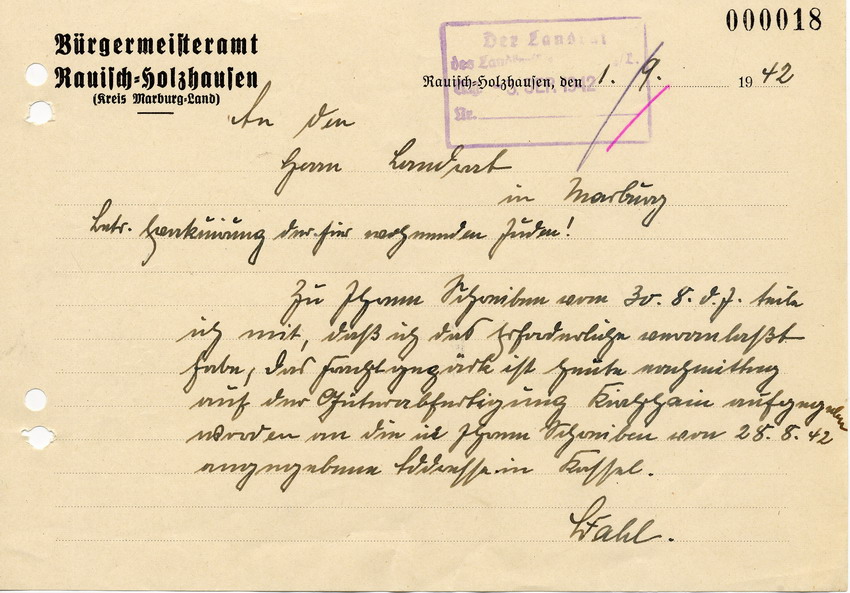 000018
Bürgermeisteramt
Rauisch-Holzhausen
(Kreis Marburg-Land)
Der Landrat
Rauisch-Holzhausen, den 1. 9. 1942
Nr.
An den
Herrn Landrat
in Marburg
Betr. der hier wohnenden Juden!
Zu Ihrem Schreiben vom 30. 8. d. J. teile
ich mit, daß ich das Erforderliche veranlaßt
habe, das Frachtgepäck ist heute nachmittag
auf der Güterabfertigung Kirchhain aufgegeben
worden an die in Ihrem Schreiben von 28. 8. 42
angegebene Addresse in Kassel.